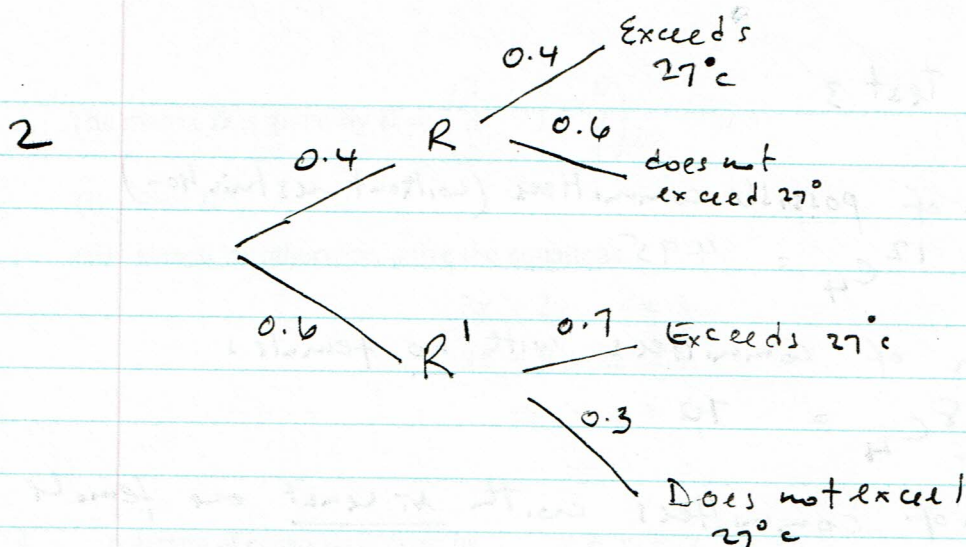 2
0.4
R
0.4
Exceeds
27°c
0.6
does not
exceed 27°
0.6
R'
0.7
Exceeds 27°c
0.3
Does not exceed
27°c